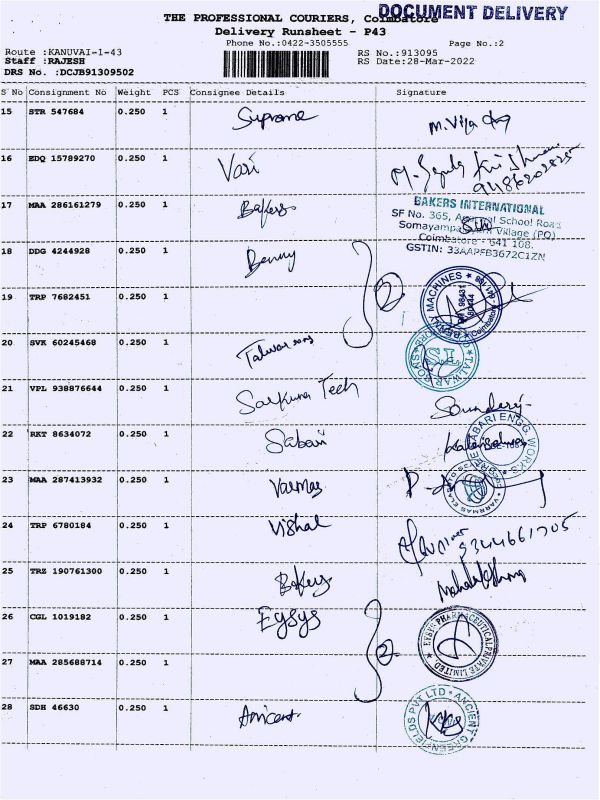 DOCUMENT DELIVERY
THE PROFESSIONAL COURIERS, Coimbatore
Delivery Runsheet - P43
Phone No.:0422-3505555 Page No.:2
Route :KANUVAI-1-43 RS No.:913095
Staff :RAJESH RS Date:28-Mar-2022
DRS No. :DCJB91309502
S No Consignment No Weight PCS Consignee Details Signature
15 STR 547684 0.250 1 Supreme
16 EDQ 15789270 0.250 1 Vari
17 MAA 286161279 0.250 1 Bakers
BAKERS INTERNATIONAL
SF No. 365, School Road
Village (PO)
Coimbatore - 641 108.
GSTIN: 33AAPFB3672C1ZN
18 DDG 4244928 0.250 1 Benny
2
19 TRP 7682451 0.250 1
20 SVK 60245468 0.250 1
21 VPL 938876644 0.250 1 Tech
22 RKT 8634072 0.250 1 Sabari
23 MAA 287413932 0.250 1 Varmas
24 TRP 6780184 0.250 1 Vishal
9344661705
25 TRZ 190761300 0.250 1 Bakers
26 CGL 1019182 0.250 1 Egsys
2
27 MAA 285688714 0.250 1
28 SDH 46630 0.250 1 Ancient